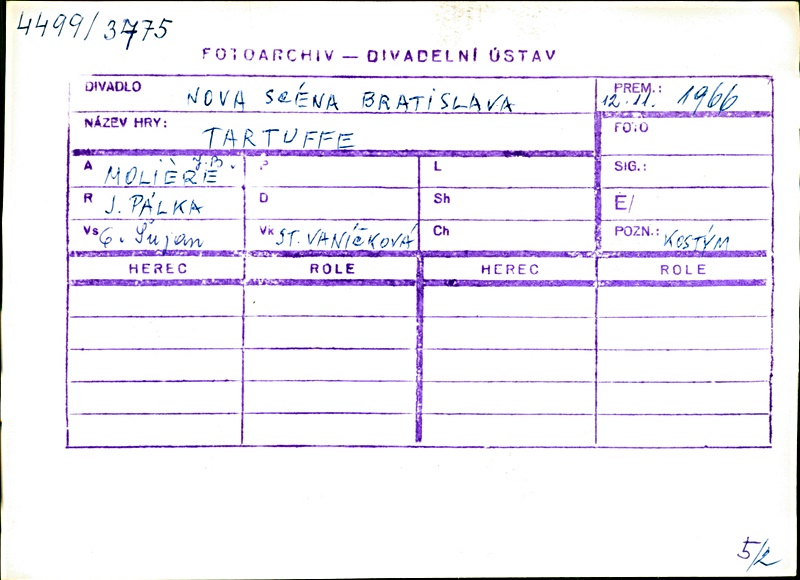 4499/3775
FOTOARCHIV — DIVADELNÍ ÚSTAV
DIVADLO NOVA SCÉNA BRATISLAVA
PREM.: 12.11. 1966
NÁZEV HRY: TARTUFFE
FOTO
A MOLIÈRE J.B.
P
L
SIG.:
R J. PÁLKA
D
Sh
E/
Vs Šujan
Vk ST. VANÍČKOVÁ
Ch
POZN.: KOSTÝM
HEREC ROLE HEREC ROLE
5/2